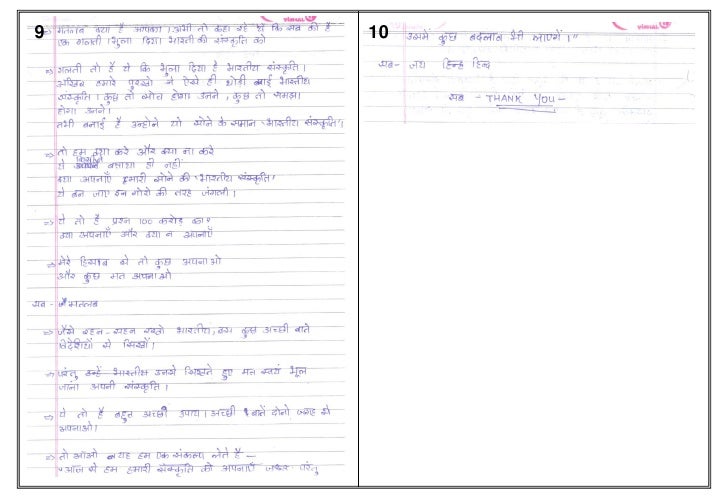 9
visual
⇒ मतलब क्या है आपका। अभी तो कहा रहे थे कि सब की है
एक गलती। भुला दिया भारती की संस्कृति को
⇒ गलती तो है ये कि भुला दिया है भारतीय संस्कृति।
आखिर हमारे पुरखो ने ऐसे ही थोडी बनाई भारतीय
संस्कृति। कुछ तो सोच होगा उनने, कुछ तो समझा
होगा उनने।
तभी बनाई है उन्होने यो सोने के समान "भारतीय संस्कृति"।
⇒ तो हम क्या करे और क्या ना करे
ये बताया ही नहीं
क्या अपनाएँ हमारी सोने की "भारतीय संस्कृति"
ये बन जाए इन गोरो की तरह जंगली।
⇒ ये तो है प्रश्न 100 करोड़ का?
क्या अपनाएँ और क्या न अपनाएँ
⇒ मेरे हिसाब से तो कुछ अपनाओ
और कुछ मत अपनाओ
सब - मतलब
⇒ जैसे रहन - सहन रखो भारतीय, बस कुछ अच्छी बाते
विदेशियों से सिखों।
⇒ परंतु उन्हें भारतीय उनसे सिखते हुए मत स्वयं भूल
जाना अपनी संस्कृति।
⇒ ये तो है बहुत अच्छा उपाय। अच्छी बातें दोनो जगह से
अपनाओ।
⇒ तो आओ यह हम एक संकल्प लेते है -
"आज से हम हमारी संस्कृति को अपनाएँ जरूर परंतु
10
visual
उसमें कुछ बदलाव भी लाएगें।"
सब - जय हिन्द हिन्द
सब - THANK YOU -